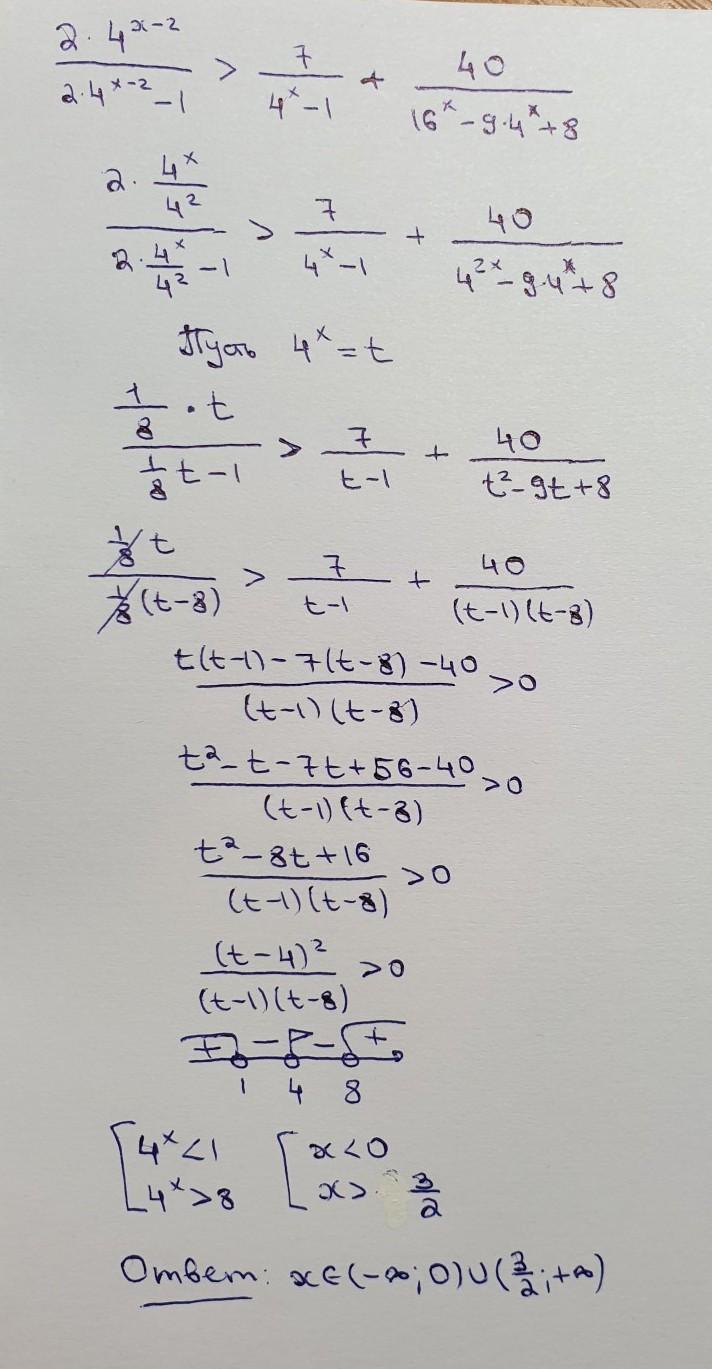 2·4^(x-2) / (2·4^(x-2) - 1) > 7 / (4^x - 1) + 40 / (16^x - 9·4^x + 8)
2·(4^x / 4^2) / (2·(4^x / 4^2) - 1) > 7 / (4^x - 1) + 40 / (4^(2x) - 9·4^x + 8)
Пусть 4^x = t
(1/8 · t) / (1/8 t - 1) > 7 / (t - 1) + 40 / (t² - 9t + 8)
(1/8 t) / (1/8 (t - 8)) > 7 / (t - 1) + 40 / ((t-1)(t-8))
(t(t-1) - 7(t-8) - 40) / ((t-1)(t-8)) > 0
(t² - t - 7t + 56 - 40) / ((t-1)(t-8)) > 0
(t² - 8t + 16) / ((t-1)(t-8)) > 0
(t-4)² / ((t-1)(t-8)) > 0
+ - - +
1 4 8
[ 4^x < 1 [ x < 0
4^x > 8 x > 3/2
Ответ: x∈(-∞; 0)∪(3/2; +∞)